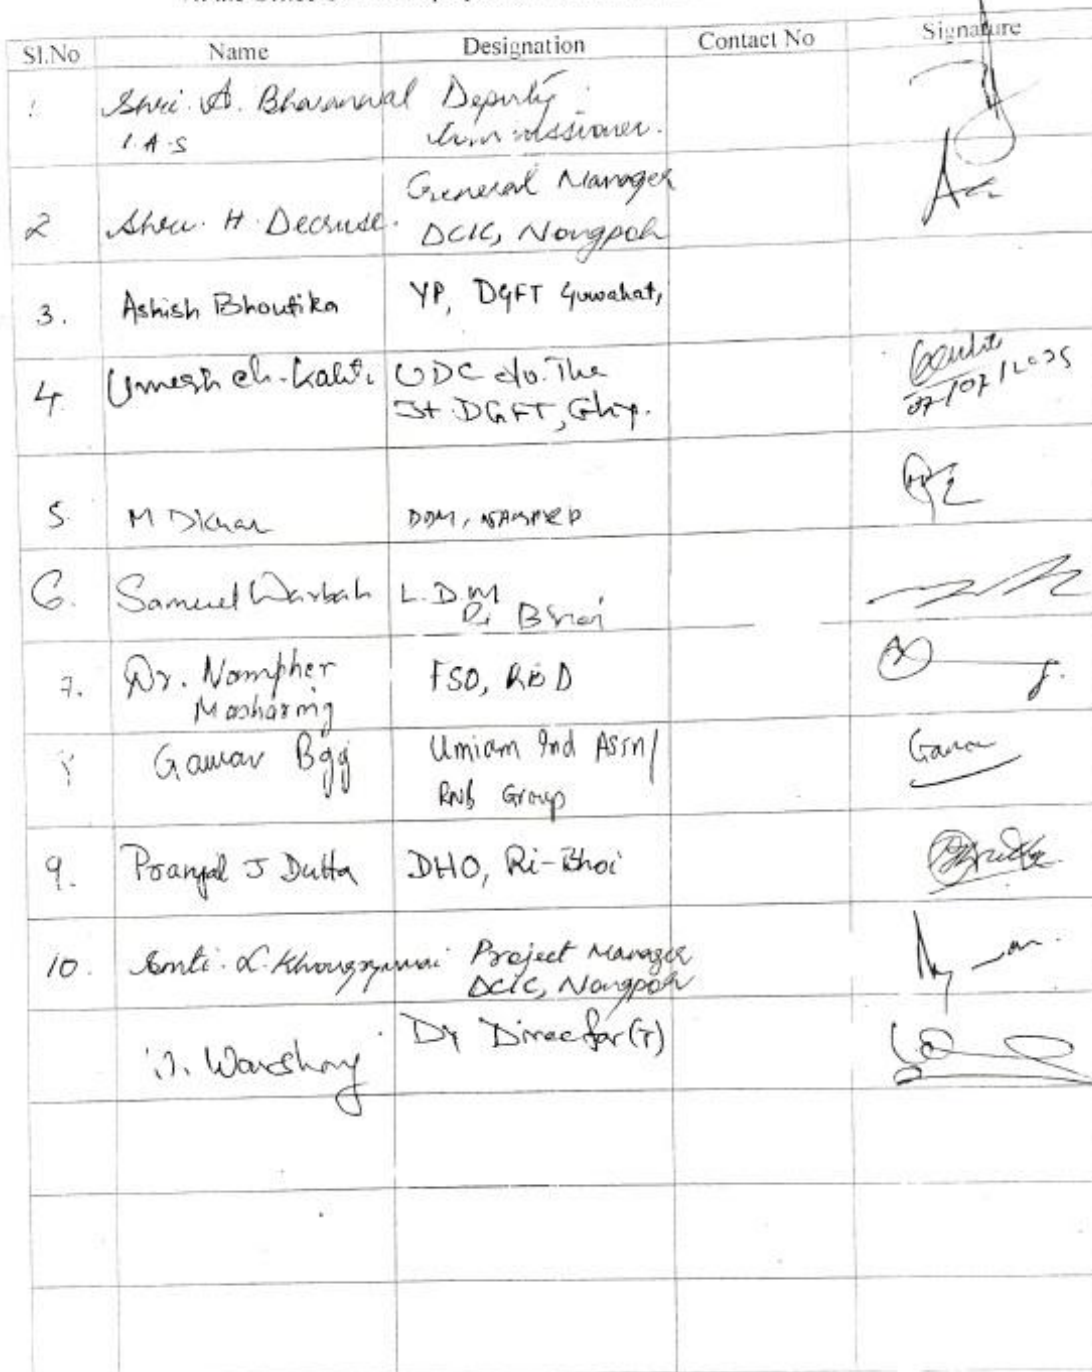 Sl.No Name Designation Contact No Signature
1 Shri. A. Bharanwal Deputy
I.A.S Commissioner.
General Manager
2 Shri. H. Decruse. DCIC, Nongpoh
3. Ashish Bhoutika YP, DGFT Guwahati
4. Umesh ch. Kalita UDC o/o. The
Jt. DGFT, Ghy.
07/07/2025
5. M Dkhar DDM, NABARD
6. Samuel Warbah L.D.M
Ri Bhoi
7. Dr. Nampher FSO, RBD
Masharing
Gaurav Umiam Ind Assn/
RNB Group
9. Pranjal J Dutta DHO, Ri-Bhoi
10. Smti. L. Khongsymai Project Manager
DCIC, Nongpoh
Dy Director(T)